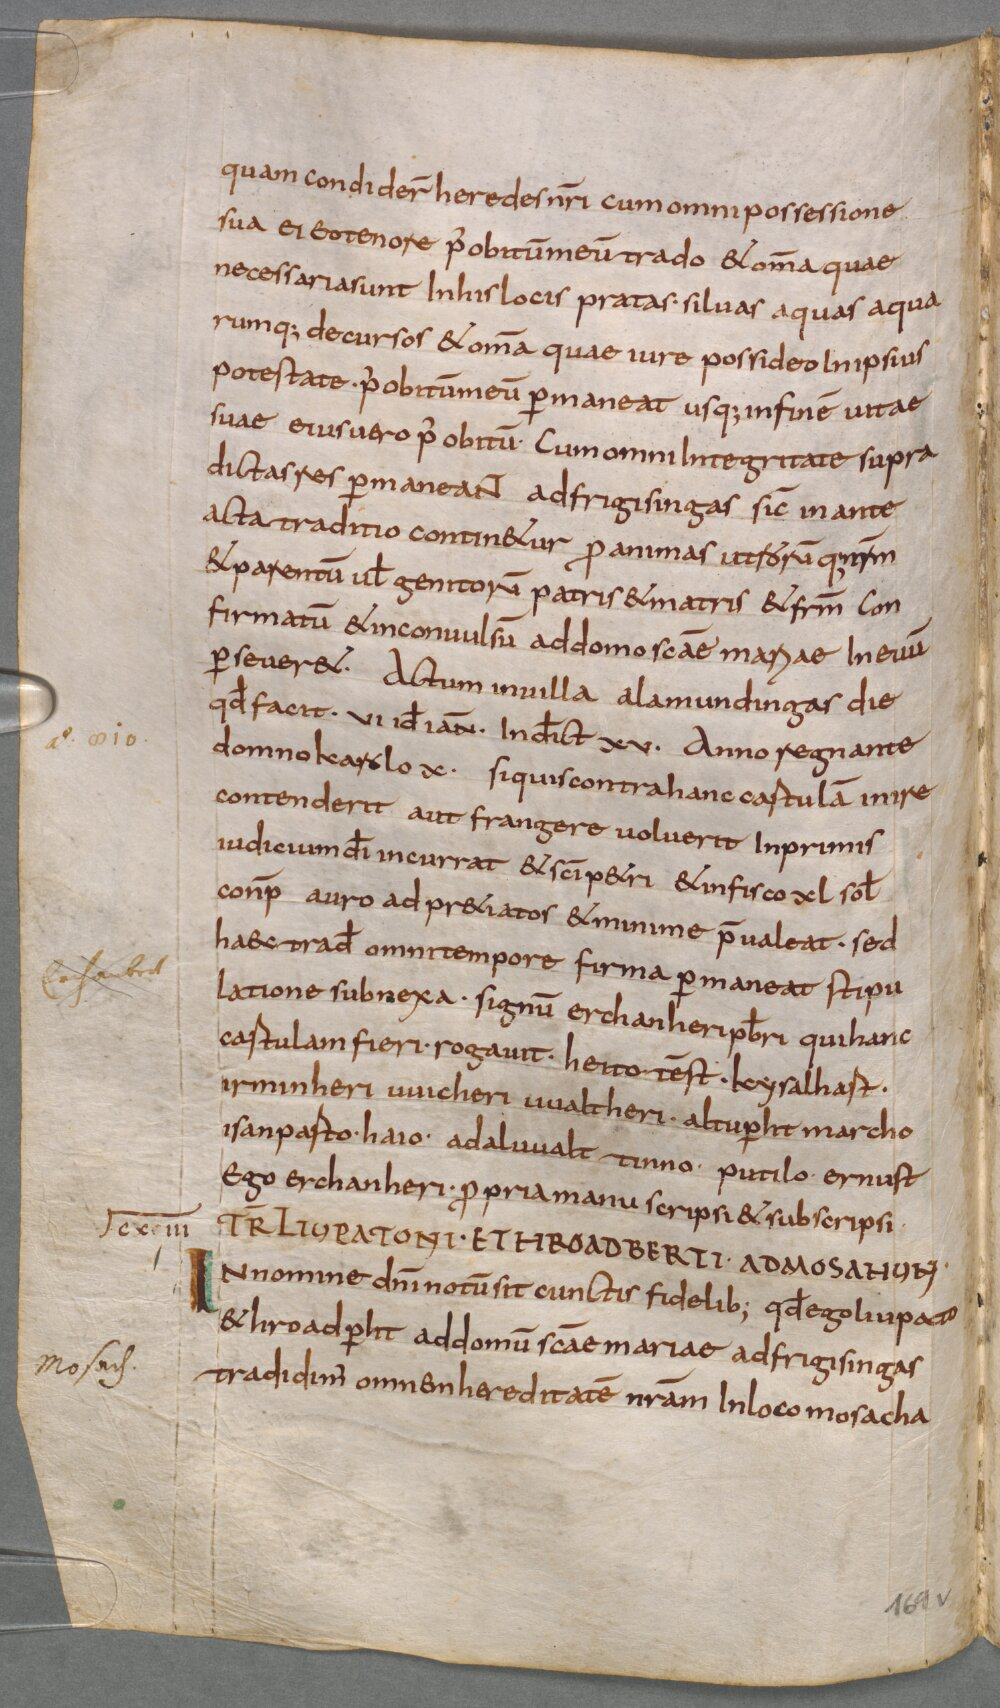 quam condider̄ heredes nr̄i cum omni possessione
sua ei eo tenore p̄ obitūmeū trado & om̄a quae
necessaria sunt In his locis pratas· siluas aquas aqua
rumq; decursos & om̄a quae iure possideo In ipsius
potestate· p̄ obitūmeū ꝑmaneat usq; in finē uitae
suae eius uero p̄ obitū· Cum omni Integritate supra
dictas res ꝑmaneaNT ad frigisingas sic̄ in ante
acta traditio contin&ur ꝓ animas utrorūq; nr̄m
& parentū ul̄ genitorū patris & matris & fr̄m Con
firmatū & inconuulsū ad domo scāe mariae In euū
ꝑseuer&· Actum in uilla alamundingas die
qd̄ facit· vi id̄ iāN· Ind̄ict xv· Anno regnante
aº· ꝏ10·
domno karlo x· si quis contra hanc cartulā inire
contenderit aut frangere uoluerit In primis
iudicium dī incurrat & scī p&ri & in fisco xl sol̄
conp̄ auro ad pr&iatos & minime p̄ualeat· sed
haec trad̄ omni tempore firma ꝑmaneat stipu
latione subnexa· signū erchanheri pb̄ri qui hanc
cartulam fieri· rogauit· heito· tēst· kysalhart·
irminheri uuicheri uualtheri· altuꝑht marcho
isanparto· haio· adaluualt tinno· putilo· ernust
Ego erchanheri· ꝓpria manu scripsi & subscripsi·
cxciiii
TR̄ LIUPATONI· ET HROADBERTI· AD MOSAHUN·
IN nomine dn̄i notū sit cunctis fidelib; qd̄ ego liupato
& hroadꝑht ad domū scāe mariae ad frigisingas
Mosach.
tradidim̄ omnEn hereditatē nr̄am In loco mosacha
169 v